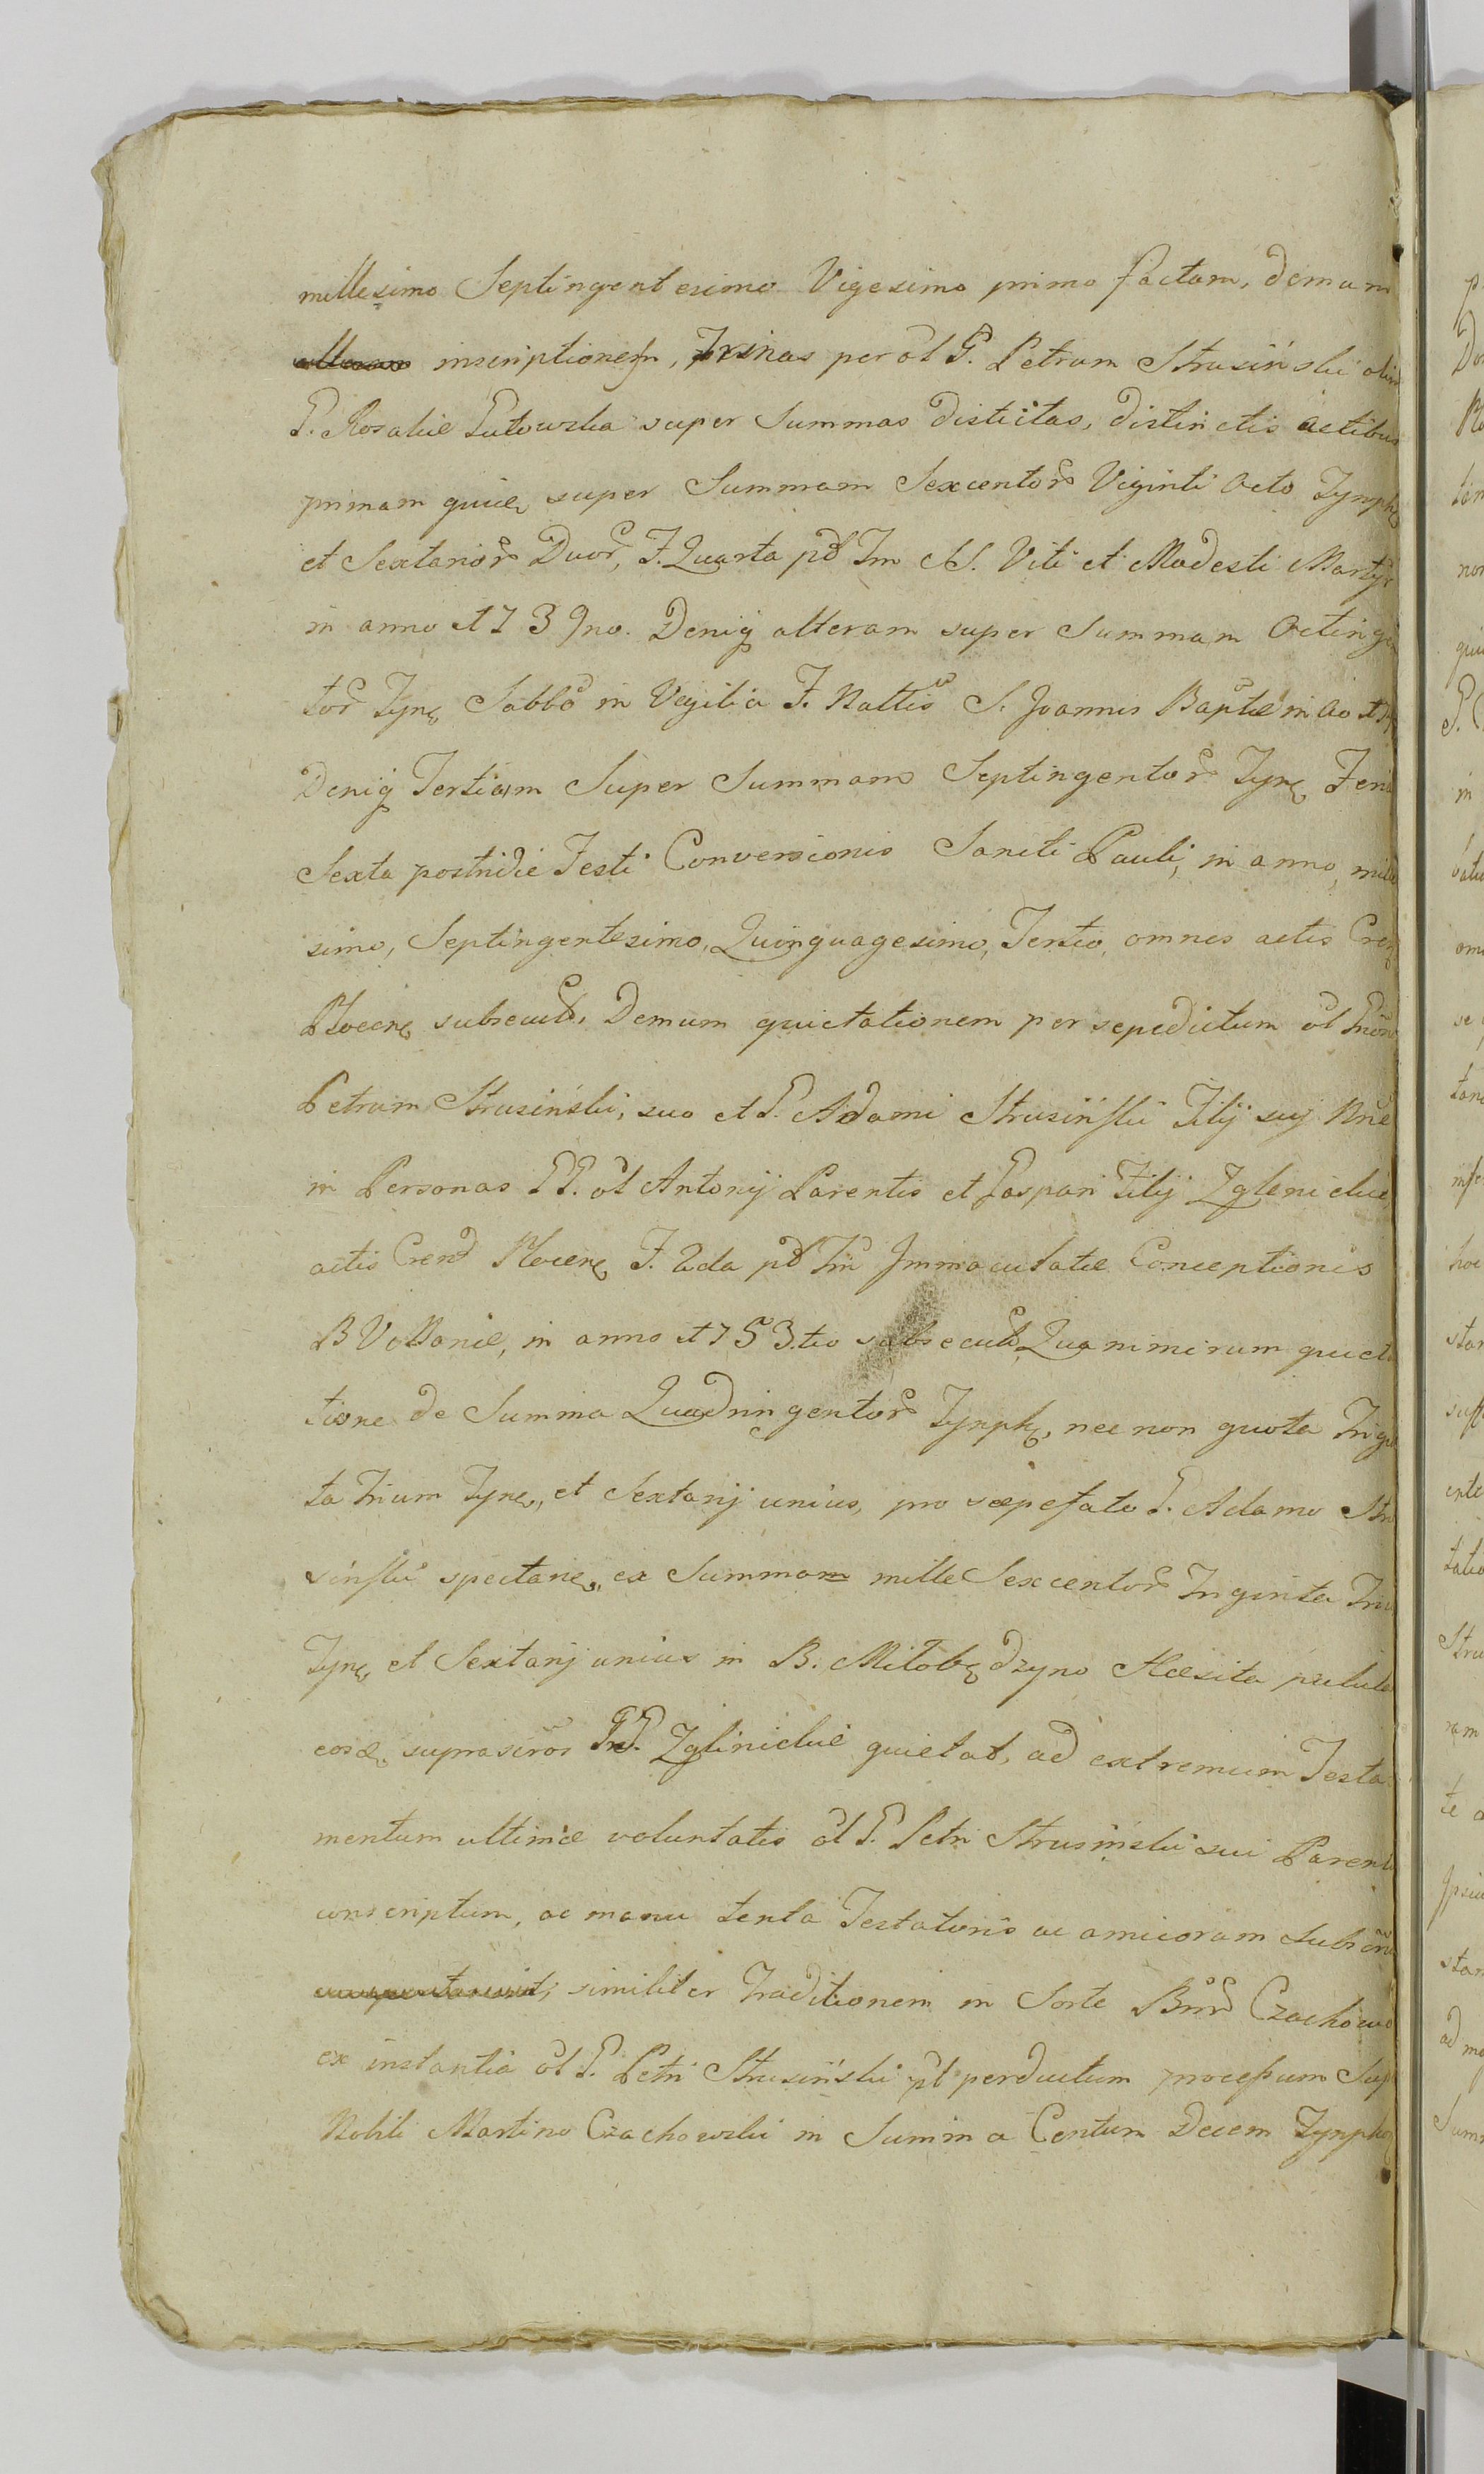 millesimo Septingentesimo Vigesimo primo factam, demum
inscriptionem, Trinas per ol G. Petrum Strusiński olim
G. Rosaliæ Lutowska super Summas distictas, distinctis actibus
primam quidę super Summam Sexcentor Viginti Octo Tynph
et Sextarior Duor, F. Quarta pd Fm S. Viti et Modesti Marty
in anno 1739no. Deniq alteram super Summam Octinge
tor Tynę Sabbo in Vegilia F. Nattis S. Joannis Baptæ in Ao
Deniq Tertiam Super Summam Septingentor Tynę Feria
Sexta postridie Festi Conversionis Sancti Pauli, in anno, mille
simo, Septingentesimo, Quinguagesimo, Tertio, omnes actis Cren
Plocenę subsecut. Demum quietationem per sepedictum ol Gnõ
Petrum Strusiński, suo et G. Adami Strusińſki Filij suj Nne
in Personas GG. ol Antonij Parentis et Gaspari Filij Zglenickie
actis Crend Plocenę F. 2da pd Fm Immaculatæ Conceptionis
B V Mariæ, in anno 1753.tio subsecut Qua nimirum quieta
tione de Summa Quadringentor Tynph, nec non quota Trigin
ta Trium Tynę, et Sextarij unius, pro sæpefato G. Adamo Stru
sińſki spectanę, ex Summam mille Sexcentor Triginta Triu
Tynę et Sextarij unius in B. Miłobędzyno Hæsita
eosdę suprascros GG. Zglinickie quietat, ad extremum Testa
mentum ultimæ voluntatis ol G. Petri Strusiński sui Parent
conscriptum, ac manu tenta Testatoris ac amicorum Subscr
similiter Traditionem in Sorte Bnor Czachowo
ex instantia ol G. Petri Strusiński pt perductum processum Sup
Nobili Martino Czachowski in Summa Centum Decem Tynpho